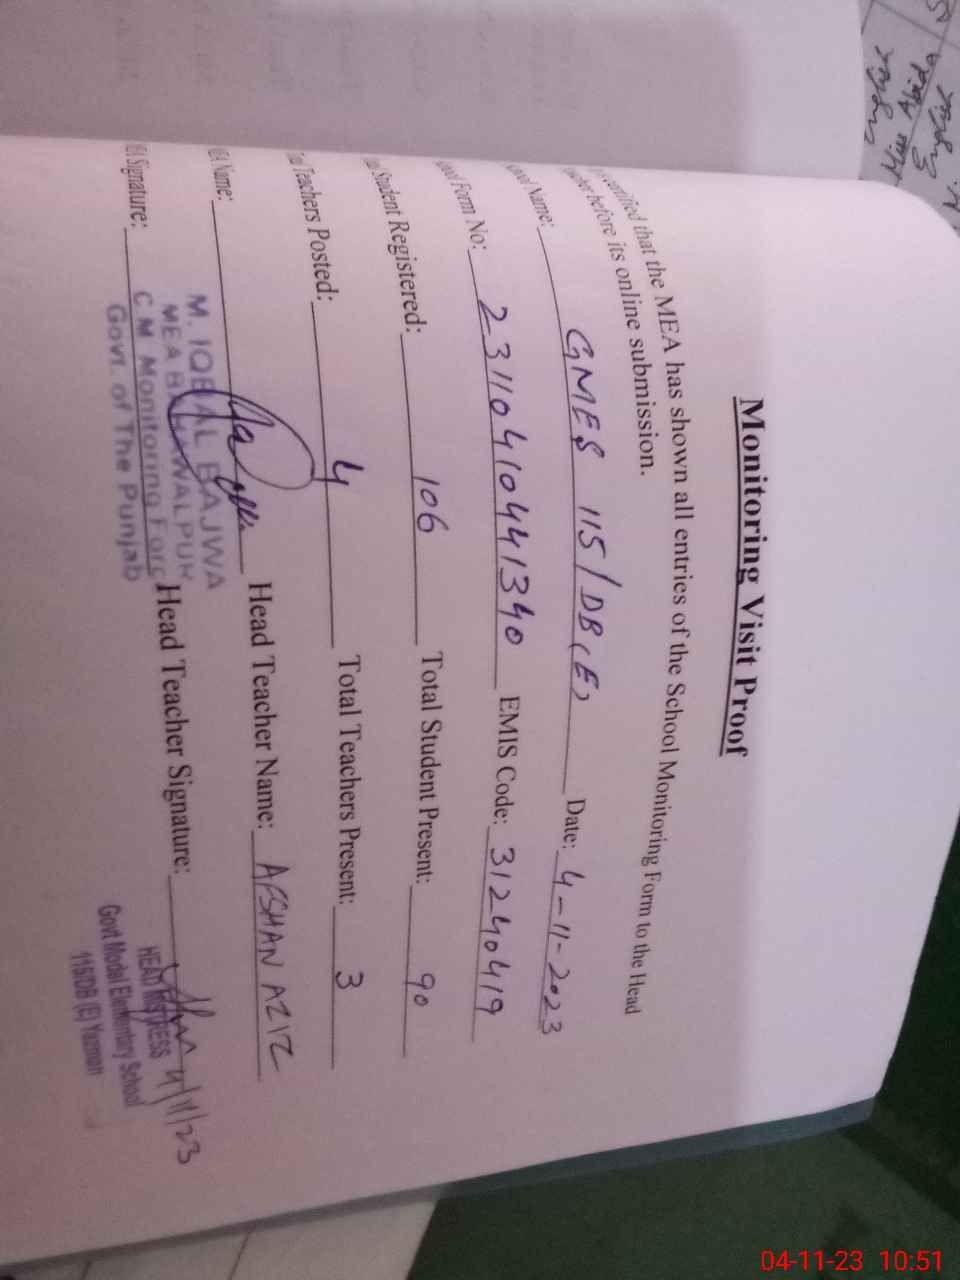 Monitoring Visit Proof
certified that the MEA has shown all entries of the School Monitoring Form to the Head
before its online submission.
Name: GMES 115/DB(E) Date: 4-11-2023
Form No: 23110410441340 EMIS Code: 31240419
Student Registered: 106 Total Student Present: 90
Teachers Posted: 4 Total Teachers Present: 3
Name: Head Teacher Name: AFSHAN AZIZ
Signature: Head Teacher Signature: 4/11/23
M. IQBAL BAJWA
MEA BAHAWALPUR
C M Monitoring Forc
Govt. of The Punjab
HEAD MISTRESS
Govt Model Elementary School
115/DB (E) Yazman
Miss Abida
04-11-23 10:51